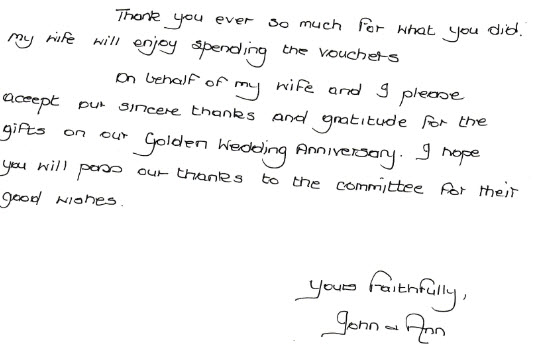 Thank you ever so much for what you did.
My wife will enjoy spending the vouchers
On behalf of my wife and I please
accept our sincere thanks and gratitude for the
gifts on our Golden Wedding Anniversary. I hope
you will pass our thanks to the committee for their
good wishes.
Yours faithfully,
John & Ann